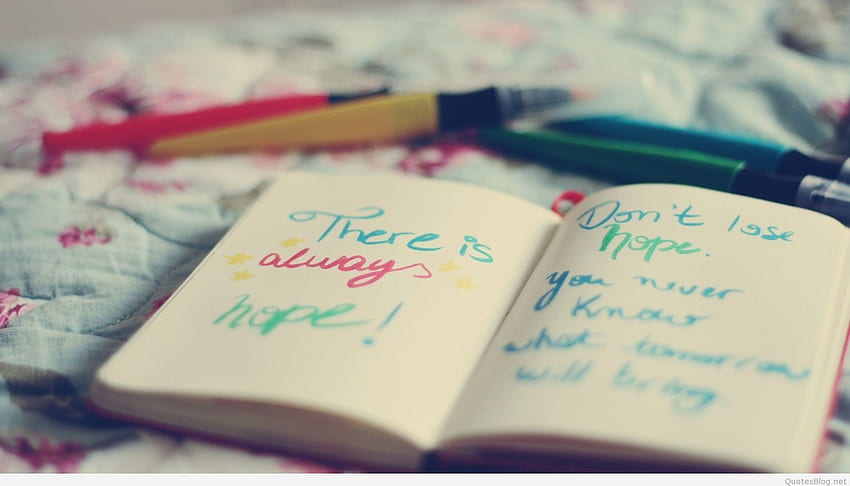 There is
always
hope!
Don't lose
hope.
you never
know
what tomorrow
will bring.
QuotesBlog.net